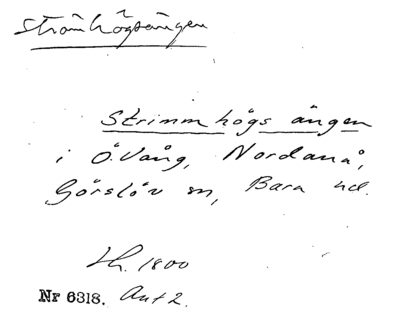 Strömhögsängen
Strimm högs ängen
i Ö. Vång, Nordanå,
Görslöv sn, Bara hd.
Lh. 1800
Nr 6318. Akt 2.